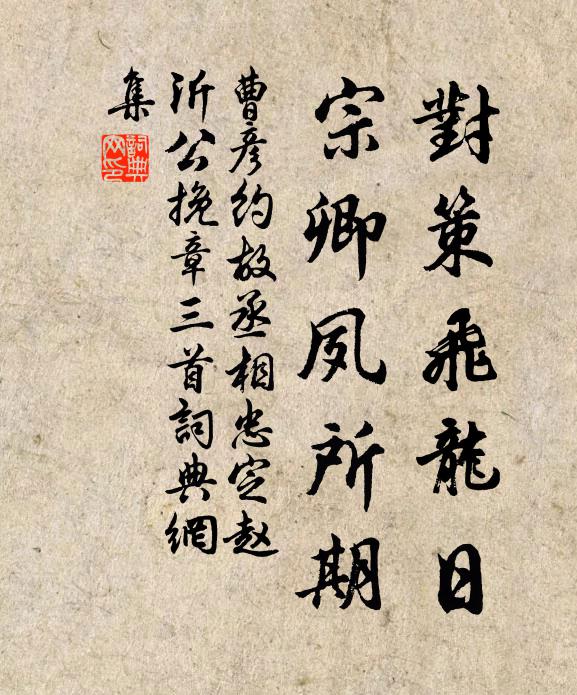 對策飛龍日
宗卿夙所期
曹彥約故丞相忠定趙
沂公挽章三首詞典網
集
詞典網印